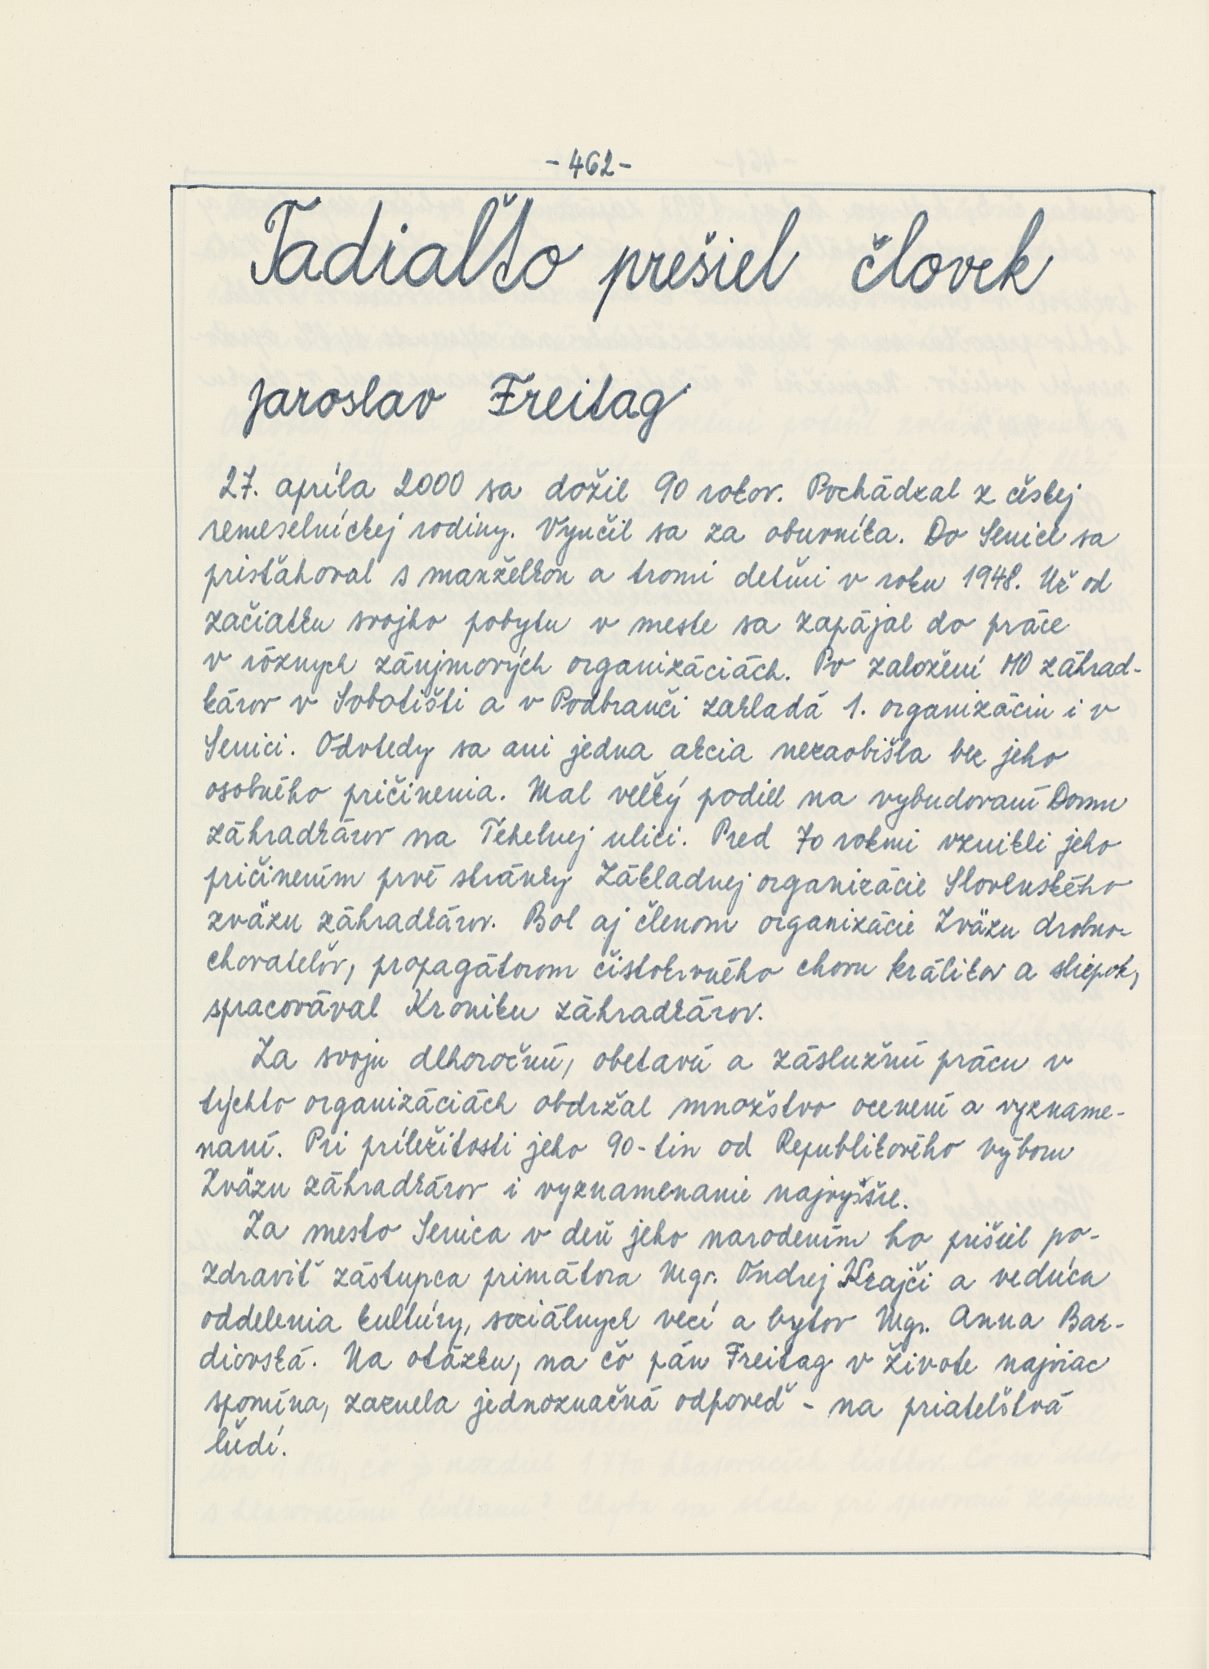 - 462 -
Tadiaľto prešiel človek
Jaroslav Freitag
27. apríla 2000 sa dožil 90 rokov. Pochádzal z českej
remeselníckej rodiny. Vyučil sa za obuvníka. Do Senice sa
prisťahoval s manželkou a tromi deťmi v roku 1948. Už od
začiatku svojho pobytu v meste sa zapájal do práce
v rôznych záujmových organizáciách. Po založení MO záhrad-
károv v Sobotišti a v Podbranči zakladá 1. organizáciu i v
Senici. Odvtedy sa ani jedna akcia nezaobišla bez jeho
osobného pričinenia. Mal veľký podiel na vybudovaní Domu
záhradkárov na Tehelnej ulici. Pred 70 rokmi vznikli jeho
pričinením prvé stránky Základnej organizácie Slovenského
zväzu záhradkárov. Bol aj členom organizácie Zväzu drobno-
chovateľov, propagátorom čistokrvného chovu králikov a sliepok,
spracovával Kroniku záhradkárov.
Za svoju dlhoročnú, obetavú a záslužnú prácu v
týchto organizáciách obdržal množstvo ocenení a vyzname-
naní. Pri príležitosti jeho 90-tin od Republikového výboru
Zväzu záhradkárov i vyznamenanie najvyššie.
Za mesto Senica v deň jeho narodením ho prišiel po-
zdraviť zástupca primátora Mgr. Ondrej Krajči a vedúca
oddelenia kultúry, sociálnych vecí a bytov Mgr. Anna Bar-
diovská. Na otázku, na čo pán Freitag v živote najviac
spomína, zaznela jednoznačná odpoveď - na priateľstvá
ľudí.